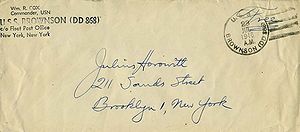 Wm. R. COX
Commander, USN
U.S.S. BROWNSON (DD 868)
c/o Fleet Post Office
New York, New York
U.S.
1945
A.M.
BROWNSON (DD
Julius Horowitz
211 Sands Street
Brooklyn 1, New York